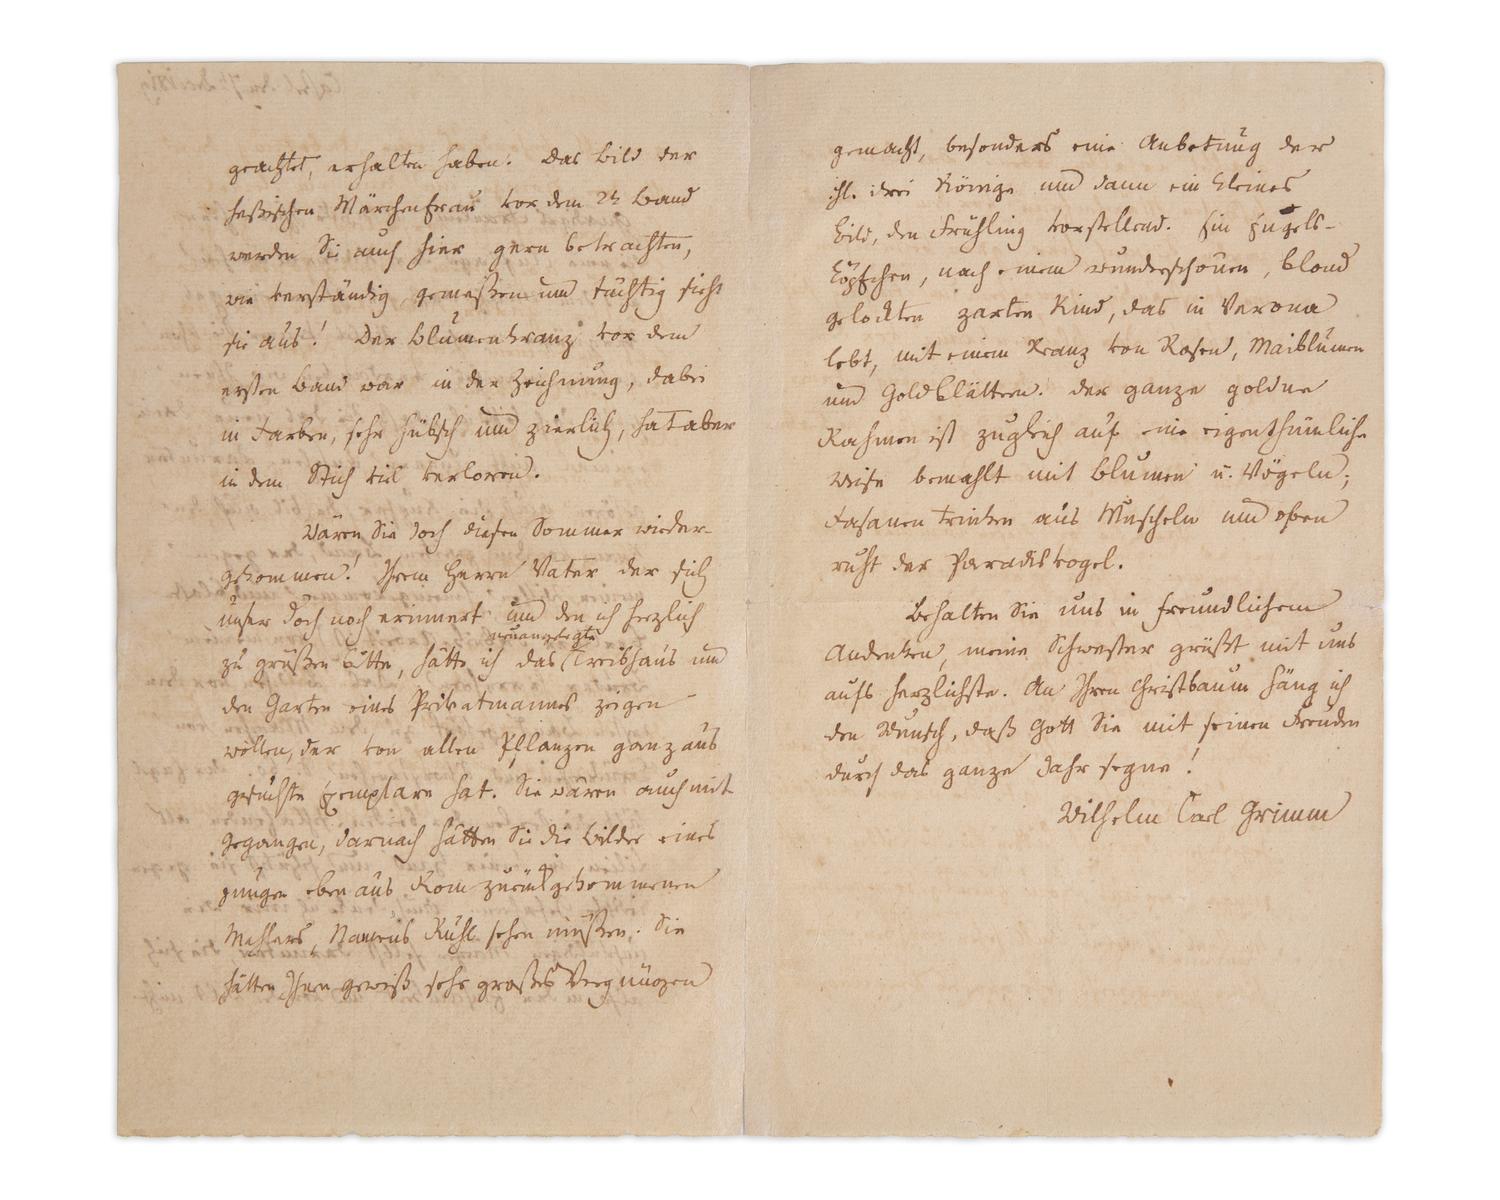 geachtet, erhalten haben. Das Bild der
heßischen Märchenfrau vor dem 2t Band
werden Sie auch hier gern betrachten,
wie verständig, gemeßen und tüchtig sieht
sie aus! Der Blumenkranz vor dem
ersten Band war in der Zeichnung, dabei
in Farben, sehr hübsch und zierlich, hat aber
in dem Stich viel verloren.
Wären Sie doch diesen Sommer wieder-
gekommen! Ihrem Herrn Vater der sich
unser doch noch erinnert und den ich herzlich
neuangelegte
zu grüßen bitte, hätte ich das Treibhaus und
den Garten eines Privatmannes zeigen
wollen, der von allen Pflanzen ganz aus
gesuchte Exemplare hat. Sie wären auch mit
gegangen, darnach hätten Sie die Bilder eines
jungen eben aus Rom zurückgekommenen
Mahlers, Namens Ruhl sehen müßen. Sie
hätten Ihnen gewiß sehr großes Vergnügen
gemacht, besonders eine Anbetung der
hl. drei Könige und dann ein kleines
Bild, den Frühling vorstellend. Ein Engels-
köpfchen, nach einem wunderschönen, blond
gelockten zarten Kind, das in Verona
lebt, mit einem Kranz von Rosen, Maiblumen
und Goldblättern. Der ganze goldne
Rahmen ist zugleich auf eine eigenthümliche
Weise bemahlt mit Blumen u. Vögeln;
Fasanen trinken aus Muscheln und oben
ruht der Paradisvogel.
Behalten Sie uns in freundlichem
Andenken, meine Schwester grüßt mit uns
aufs herzlichste. An Ihren Christbaum häng ich
den Wunsch, daß Gott Sie mit seinen Freuden
durch das ganze Jahr segne!
Wilhelm Carl Grimm